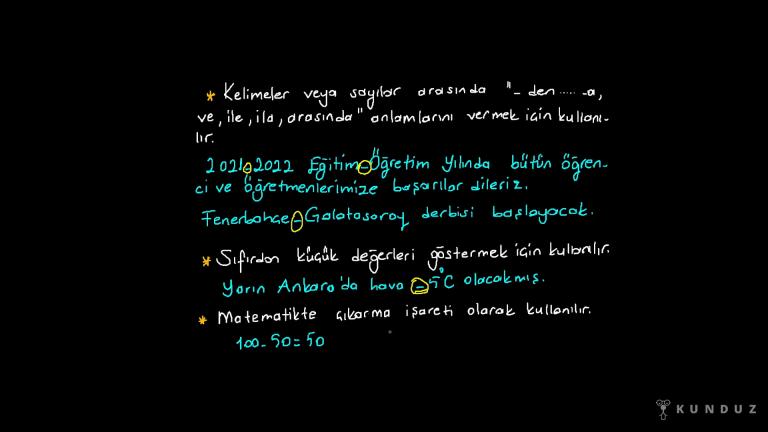 * Kelimeler veya sayılar arasında "-den ..... -a,
ve, ile, ila, arasında" anlamlarını vermek için kullanı-
lır.
2021-2022 Eğitim-Öğretim Yılında bütün öğren-
ci ve öğretmenlerimize başarılar dileriz.
Fenerbahçe-Galatasaray derbisi başlayacak.
* Sıfırdan küçük değerleri göstermek için kullanılır.
Yarın Ankara'da hava -5°C olacakmış.
* Matematikte çıkarma işareti olarak kullanılır.
100-50=50
KUNDUZ